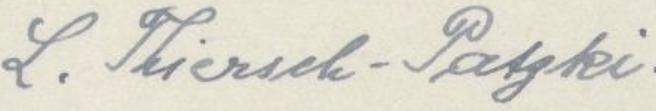 L. Thiersch-Patzki.